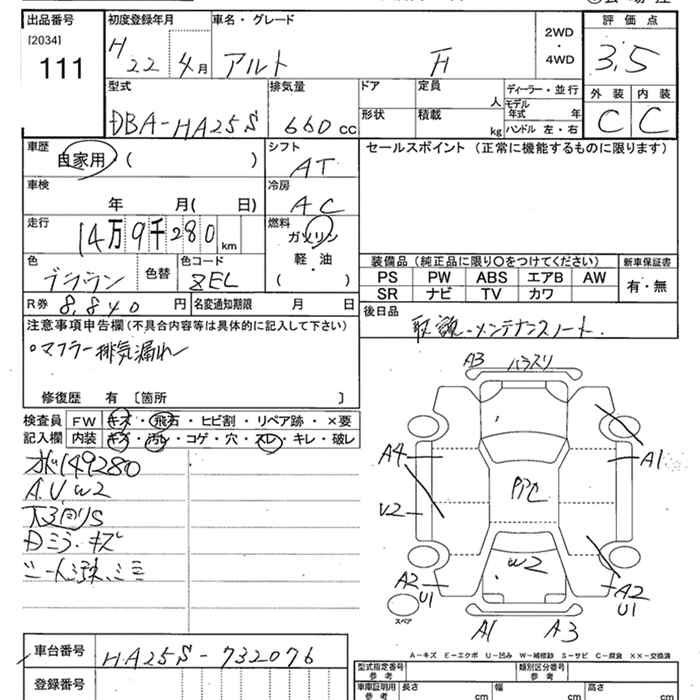 出品番号
[2034]
111
初度登録年月
H 22 4月
車名・グレード
アルト F
2WD
・
4WD
評価点
3.5
外装 内装
C C
型式
DBA-HA25S
排気量
660 cc
ドア
形状
定員
人
積載
kg
ディーラー・並行
モデル年式 年
ハンドル 左・右
車歴
自家用 ( )
シフト
AT
車検
年 月( 日)
冷房
AC
走行
14万9千280 km
燃料
ガソリン
軽・油
( )
色
ブラウン
色替
色コード
ZEL
R券 8,840 円
名変通知期限 月 日
セールスポイント (正常に機能するものに限ります)
装備品(純正品に限り○をつけてください)
新車保証書
PS PW ABS エアB AW
SR ナビ TV カワ
有・無
後日品
取説-メンテナンスノート.
注意事項申告欄(不具合内容等は具体的に記入して下さい)
○マフラー排気漏れ
修復歴 有 〔箇所 〕
検査員
記入欄
FW キズ・飛石・ヒビ割・リペア跡・×要
内装 キズ・汚レ・コゲ・穴・スレ・キレ・破レ
149280
A.U W2
キズ
A3
A4
V2
A2
U1
A1
A2
U1
W2
A1
A3
スペア
A-キズ E-エクボ U-凹み W-補修跡 S-サビ C-腐食 XX-交換済
車台番号 HA25S-732076
登録番号
型式指定番号
参考
類別区分番号
参考
車庫証明用
参考
長さ cm
幅 cm
高さ cm